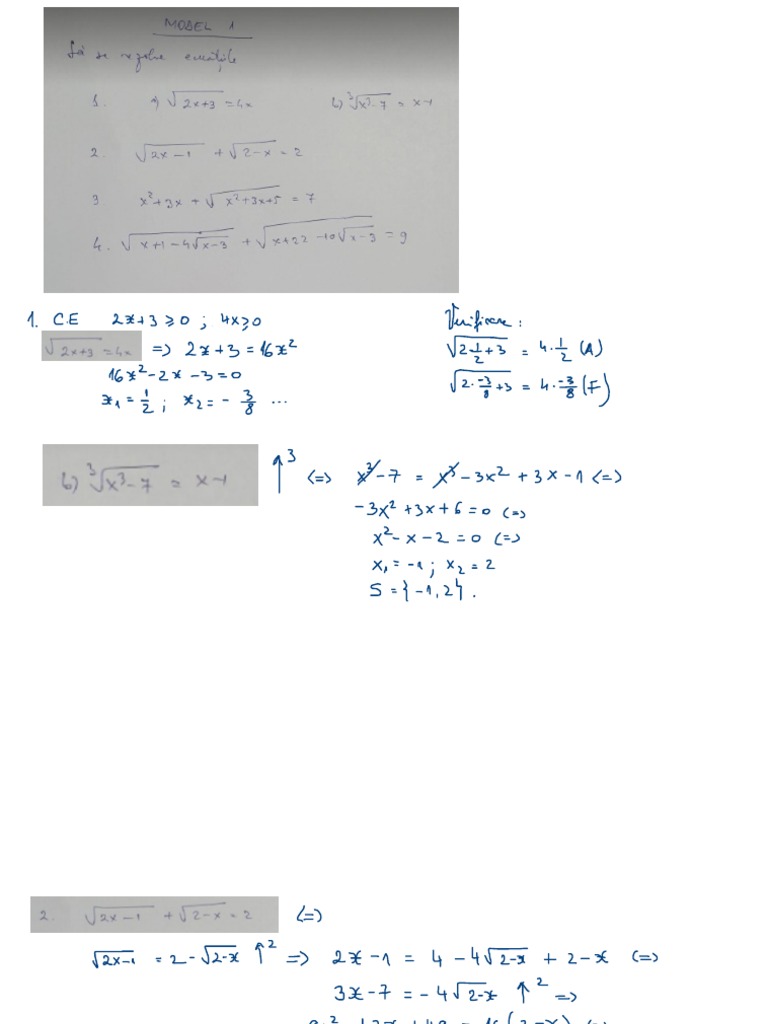 MODEL 1
Să se rezolve ecuațiile
1. a) √(2x+3) = 4x b) ∛(x³-7) = x-1
2. √(2x-1) + √(2-x) = 2
3 x²+3x + √(x²+3x+5) = 7
4. √(x+1-4√(x-3)) + √(x+22-10√(x-3)) = 9
1. C.E 2x+3 ≥ 0 ; 4x ≥ 0
√(2x+3) = 4x => 2x+3 = 16x²
16x²-2x-3=0
x₁ = 1/2 ; x₂ = - 3/8 ...
Verificare :
√(2·1/2+3) = 4·1/2 (A)
√(2·-3/8+3) = 4·-3/8 (F)
b) ∛(x³-7) = x-1 ↑³ (=) x³-7 = x³-3x²+3x-1 (=)
-3x²+3x+6=0 (=)
x²-x-2=0 (=)
x₁=-1 ; x₂=2
S={-1,2}.
2. √(2x-1) + √(2-x) = 2 (=)
√(2x-1) = 2-√(2-x) ↑² => 2x-1 = 4-4√(2-x) + 2-x (=)
3x-7 = -4√(2-x) ↑² =>